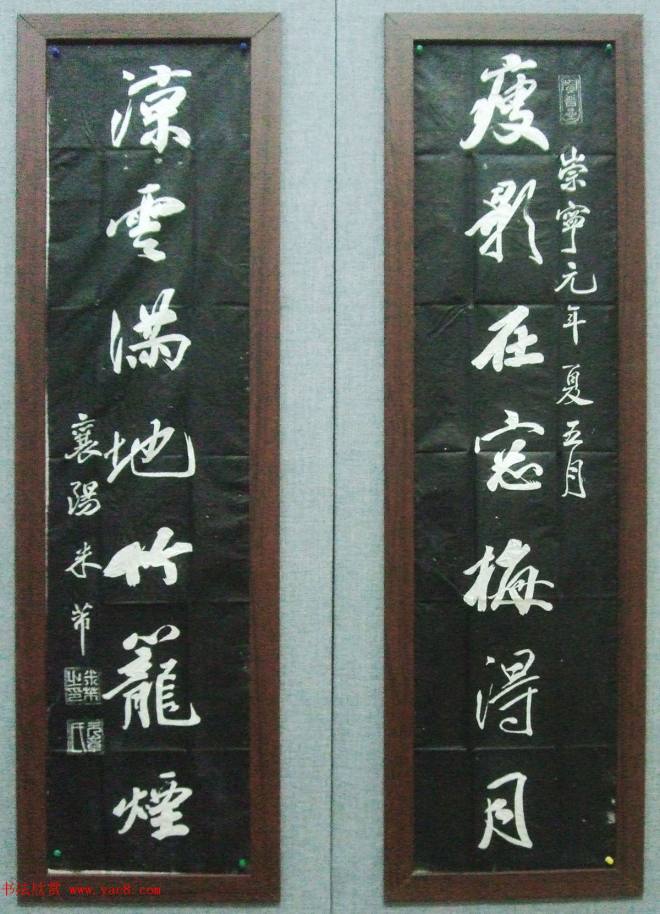 崇寧元年夏五月
瘦影在窓梅得月
涼雲滿地竹籠煙
襄陽米芾
米芾之印
书法欣赏 www.yac8.com